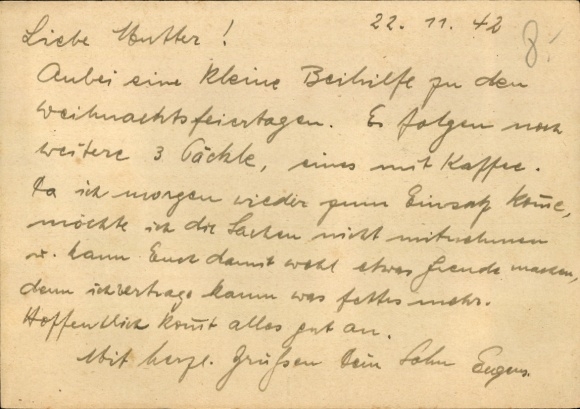 22. 11. 42
8!
Liebe Mutter!
Anbei eine kleine Beihilfe zu den
Weihnachtsfeiertagen. Es folgen noch
weitere 3 Päckle, eines mit Kaffee.
Da ich morgen wieder zum Einsatz kom̅e,
möchte ich die Sachen nicht mitnehmen
u. kann Euch damit wohl etwas Freude machen,
denn ich vertrage kaum was fettes mehr.
Hoffentlich kom̅t alles gut an.
Mit herzl. Grüßen Dein Sohn Eugen.